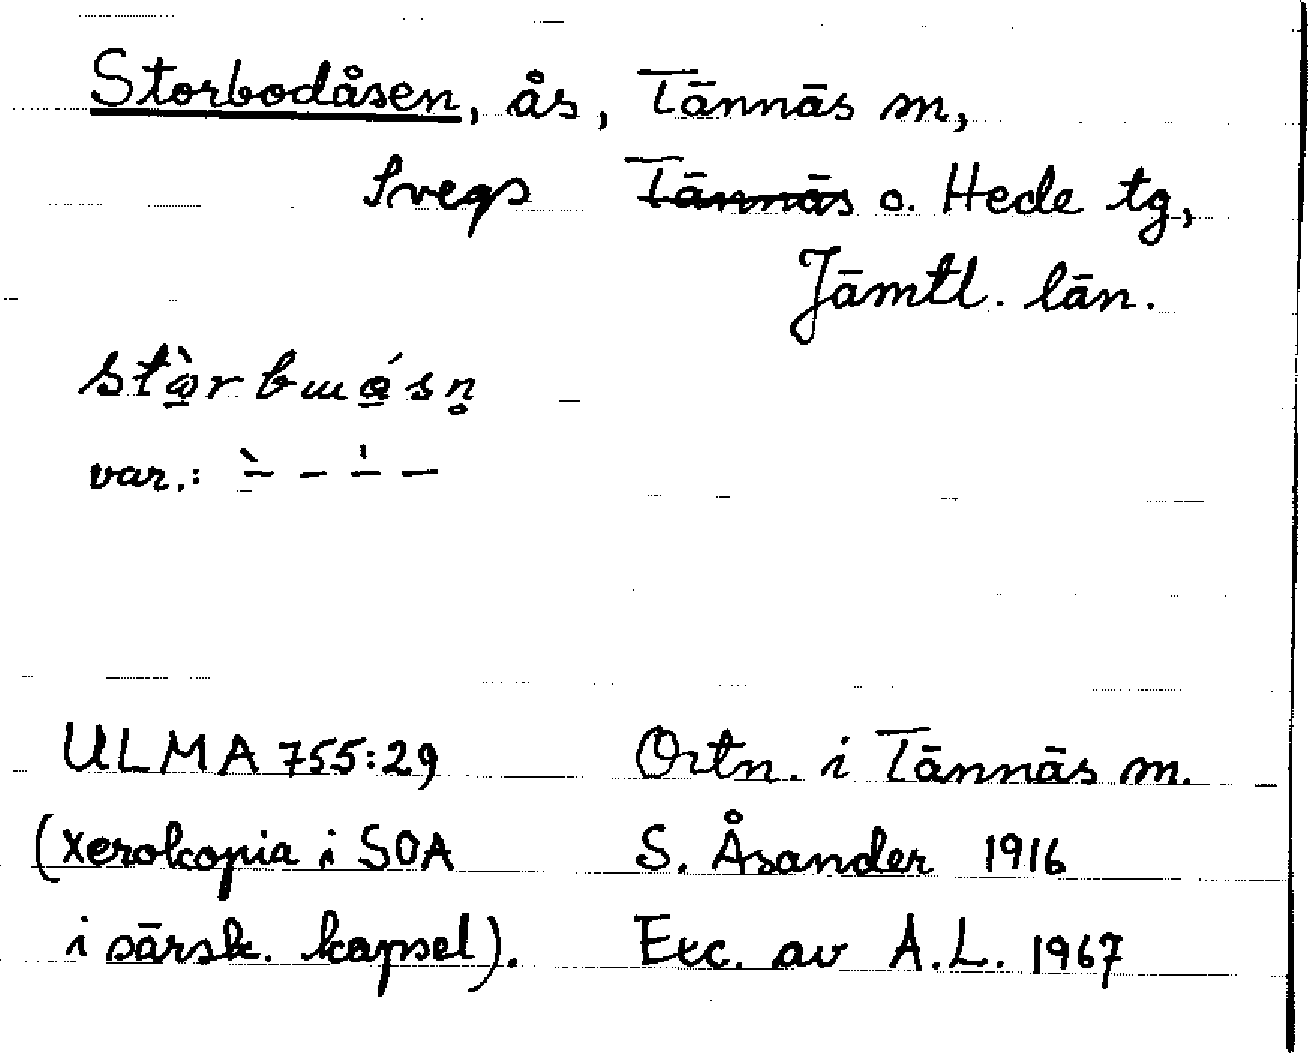 Storbodåsen, ås, Tännäs m,
Svegs ~~Tännäs~~ o. Hede tg,
Jämtl. län.
var.: 
ULMA 755:29 Ortn. i Tännäs m.
(xerokopia i SOA S. Åsander 1916
i särsk. kapsel). Exc. av A.L. 1967